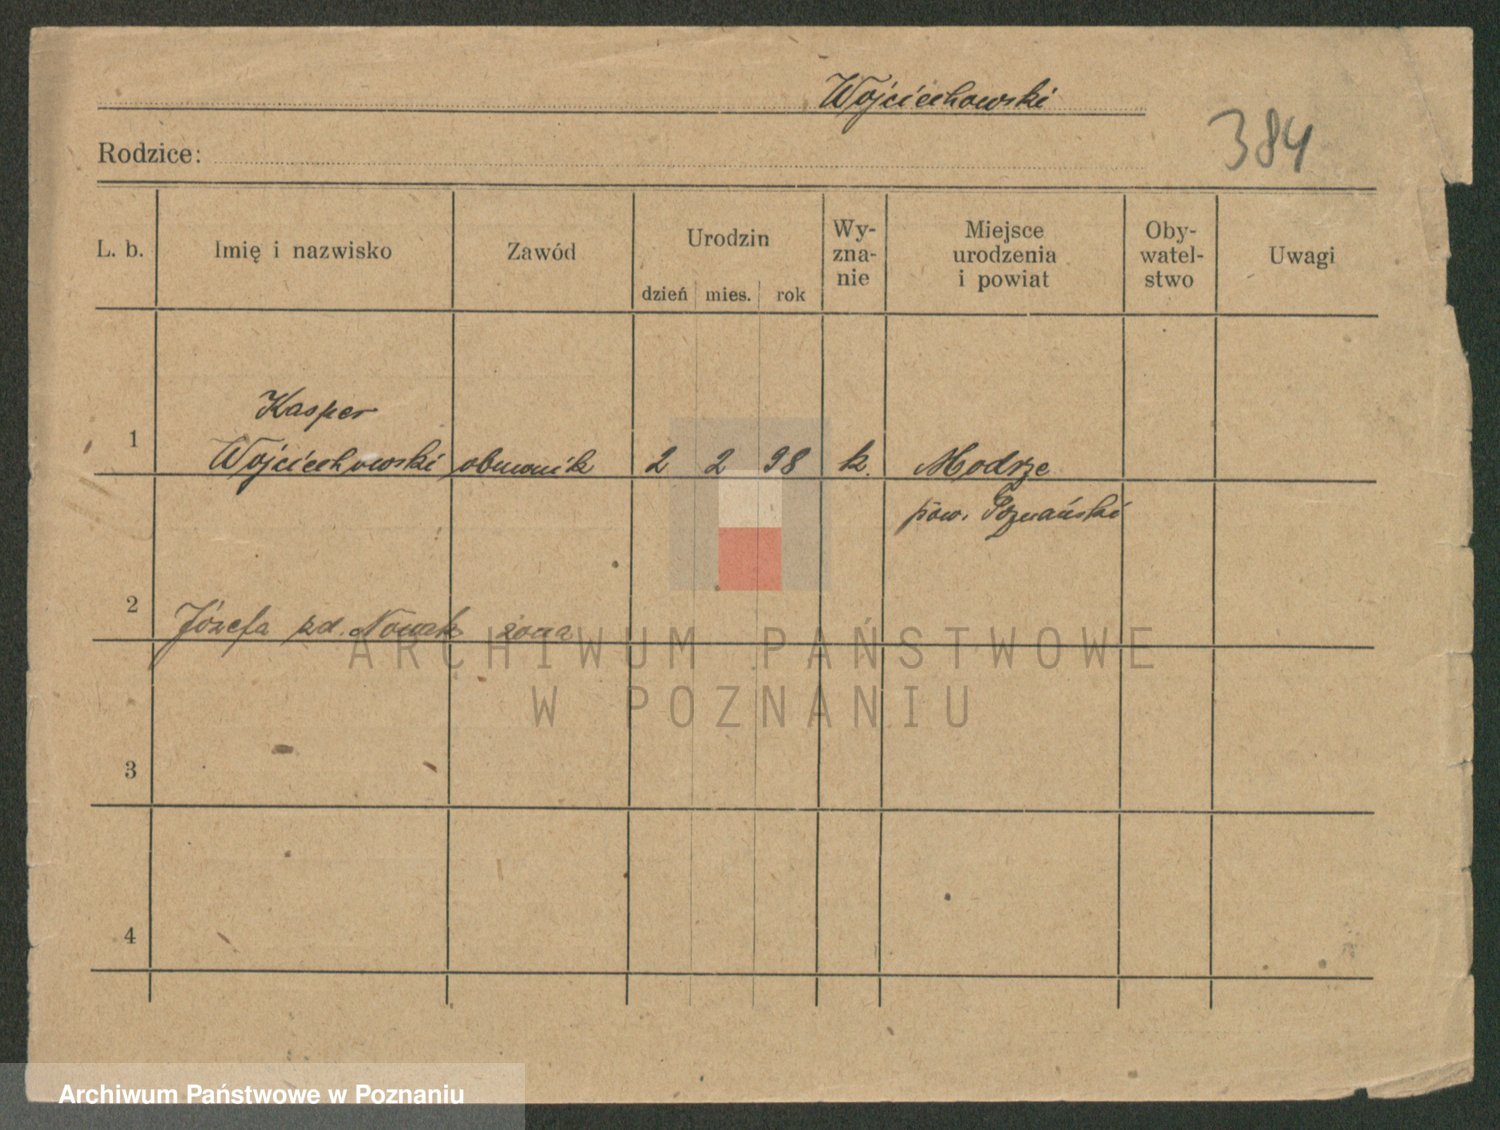 Wojciechowski
384
Rodzice:
L. b.
Imię i nazwisko
Zawód
Urodzin
dzień mies. rok
Wy-
zna-
nie
Miejsce
urodzenia
i powiat
Oby-
watel-
stwo
Uwagi
Kasper
1 Wojciechowski obuwnik 2 2 98 k. Modrze
pow. Poznański
2 Józefa zd. Nowak żona
ARCHIWUM PAŃSTWOWE
W POZNANIU
3
4
Archiwum Państwowe w Poznaniu